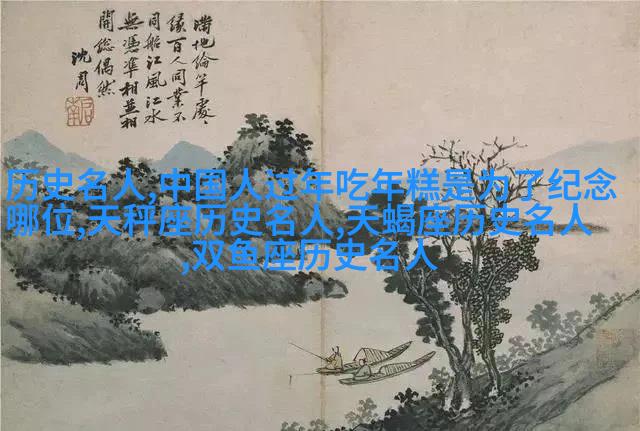 滿地綸竿處〻
緣百人同業不
同船江風江水
無憑準相並相
開總偶然
沈周
历史名人,中国人过年吃年糕是为了纪念
哪位,天秤座历史名人,天蝎座历史名人
,双鱼座历史名人